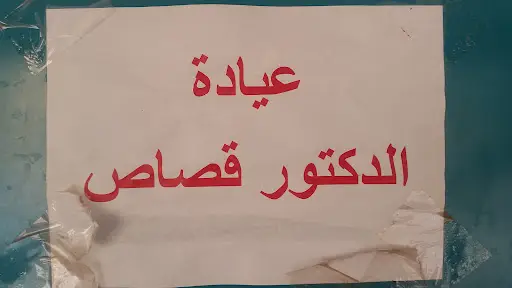 عيادة
الدكتور قصاص